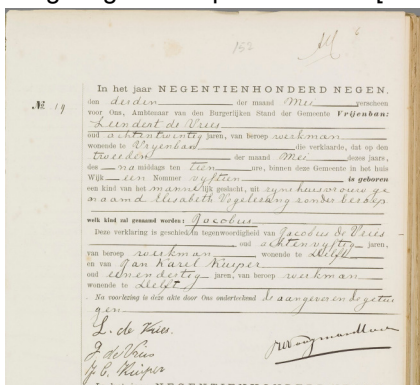 152
No. 19
In het jaar NEGENTIENHONDERD NEGEN,
den derden der maand Mei verscheen
voor Ons, Ambtenaar van den Burgerlijken Stand der Gemeente Vrijenban:
Leendert de Vries
oud achtentwintig jaren, van beroep werkman
wonende te Vryenban die verklaarde, dat op den
tweeden der maand Mei dezes jaars,
des na middags ten tien ure, binnen deze Gemeente in het huis
Wijk een Nommer vyftien is geboren
een kind van het mannelijk geslacht, uit zyne huisvrouw ge
naamd Elisabeth Vogelezang zonder beroep
welk kind zal genaamd worden: Jacobus
Deze verklaring is geschied in tegenwoordigheid van Jacobus de Vries
oud achtenvyftig jaren,
van beroep werkman wonende te Delft
en van Jan Karel Kuiper
oud eenendertig jaren, van beroep werkman
wonende te Delft.
Na voorlezing is deze akte door Ons onderteekend de aangever en de getui
gen
L. de Vries.
J de Vries
J. C. Kuiper